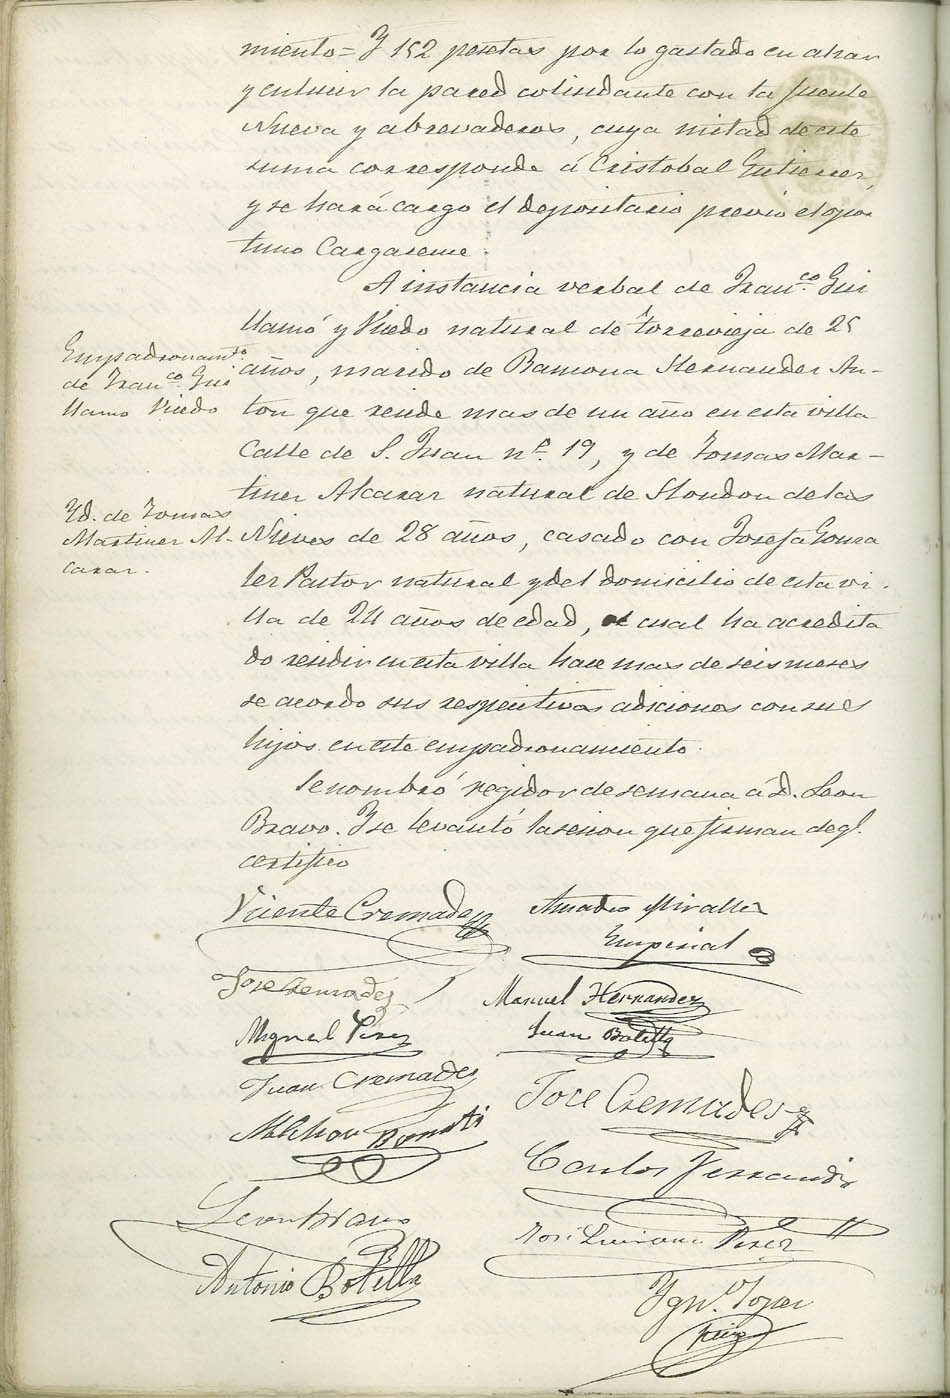 miento = Y 152 pesetas por lo gastado en alzar
y enlucir la pared colindante con la fuente
Nueva y abrevaderos, cuya mitad de este
suma corresponde á Cristobal Gutierrez,
y se hará cargo el depositario previo el opor
tuno Cargareme.
A instancia verbal de Franco. Gui
llamó y Viudo natural de Torrevieja de 25
años, marido de Ramona Hernandez An-
ton que reside mas de un año en esta villa
Calle de S. Juan nº. 19, y de Tomas Mar-
tinez Alcazar natural de Hondon de las
Nieves de 28 años, casado con Josefa Gonza
lez Pastor natural y del domicilio de esta vi-
lla de 24 años de edad, el cual ha acredita
do residir en esta villa hace mas de seis meses
se acordo sus respectivas adiciones con sus
hijos en este empadronamiento.
Se nombró regidor de semana á D. Leon
Bravo. Y se levantó la sesion que firman de q.
certifico
Empadronamto.
de Franco. Gui
llamo Viudo
Yd. de Tomas
Martinez Al-
cazar.
Vicente Cremades
Amadeo Miralles
Emperial
Jose Cremades
Manuel Hernandez
Miguel Perez
Juan Botella
Juan Cremades
Jose Cremades
Melchor
Carlos Ferrandiz
Leon Bravo
José Perez
Antonio Botella
Ygn.